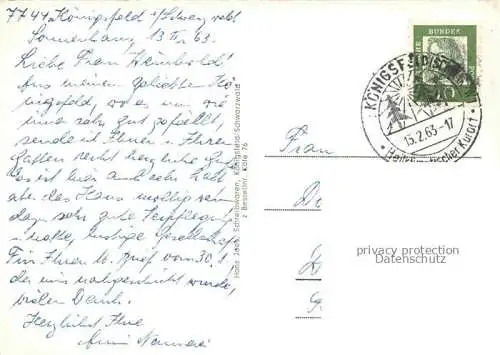 7744 Königsfeld /Schwarzwald
Sonnenhang, 13 II 63.
Liebe Frau Heimbold!
Aus meinem geliebten Kö-
nigsfeld, wo es mir wie
immer sehr gut gefällt,
sende ich Ihnen u Ihrem
Gatten recht herzliche Grüße
es ist hier auch sehr kalt
aber das Haus mollig warm
dazu sehr gute Verpflegung
u nette, lustige Gesellschaft
Für Ihren lb. Brief vom 30.1.
der mir nachgeschickt wurde,
vielen Dank.
Herzlichst Ihre
Hans Jack, Schreibwaren, Königsfeld/Schwarzwald
z Bestellnr. Köfe 76
DEUTSCHE
BUNDES
KÖNIGSFELD (SCHWARZW)
15.2.63-17
Heilklimatischer Kurort
Frau
privacy protection
Datenschutz